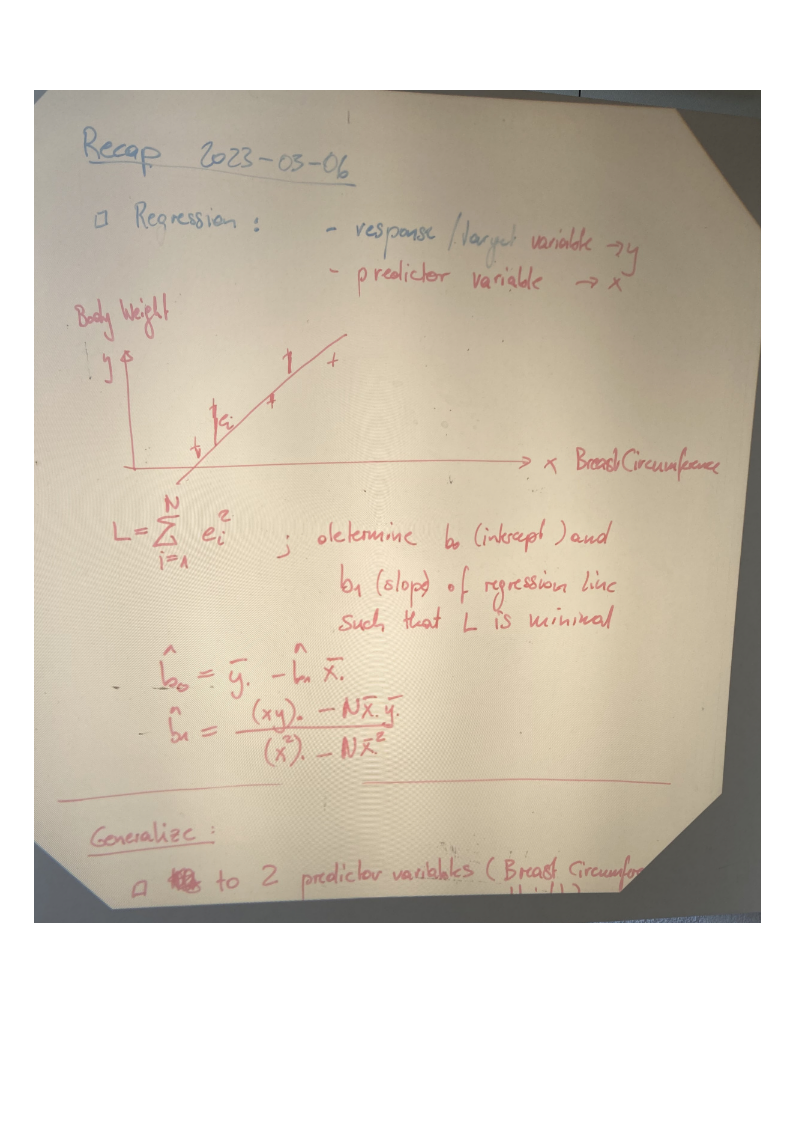 Recap 2023-03-06
□ Regression : - response / target variable → y
- predictor variable → x
Body Weight
y
e_i
x Breast Circumference
L = Σ_{i=1}^{N} e_i^2 ; determine b_0 (intercept) and
b_1 (slope) of regression line
such that L is minimal
b̂_0 = ȳ. - b̂_1 x̄.
b̂_1 = ((xy). - N x̄. ȳ.) / ((x^2). - N x̄.^2)
Generalize :
□ to 2 predictor variables (Breast Circumfere